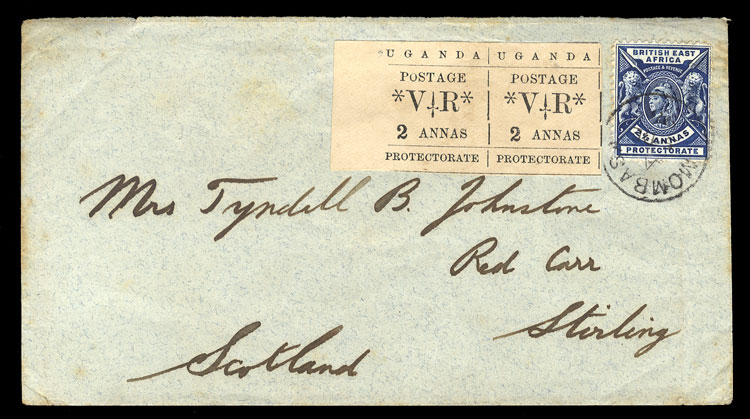 UGANDA UGANDA
POSTAGE POSTAGE
*V R* *V R*
2 ANNAS 2 ANNAS
PROTECTORATE PROTECTORATE
BRITISH EAST
AFRICA
POSTAGE & REVENUE
2½ ANNAS
PROTECTORATE
MOMBASA
Mrs Tyndell B. Johnstone
Red Carr
Stirling
Scotland